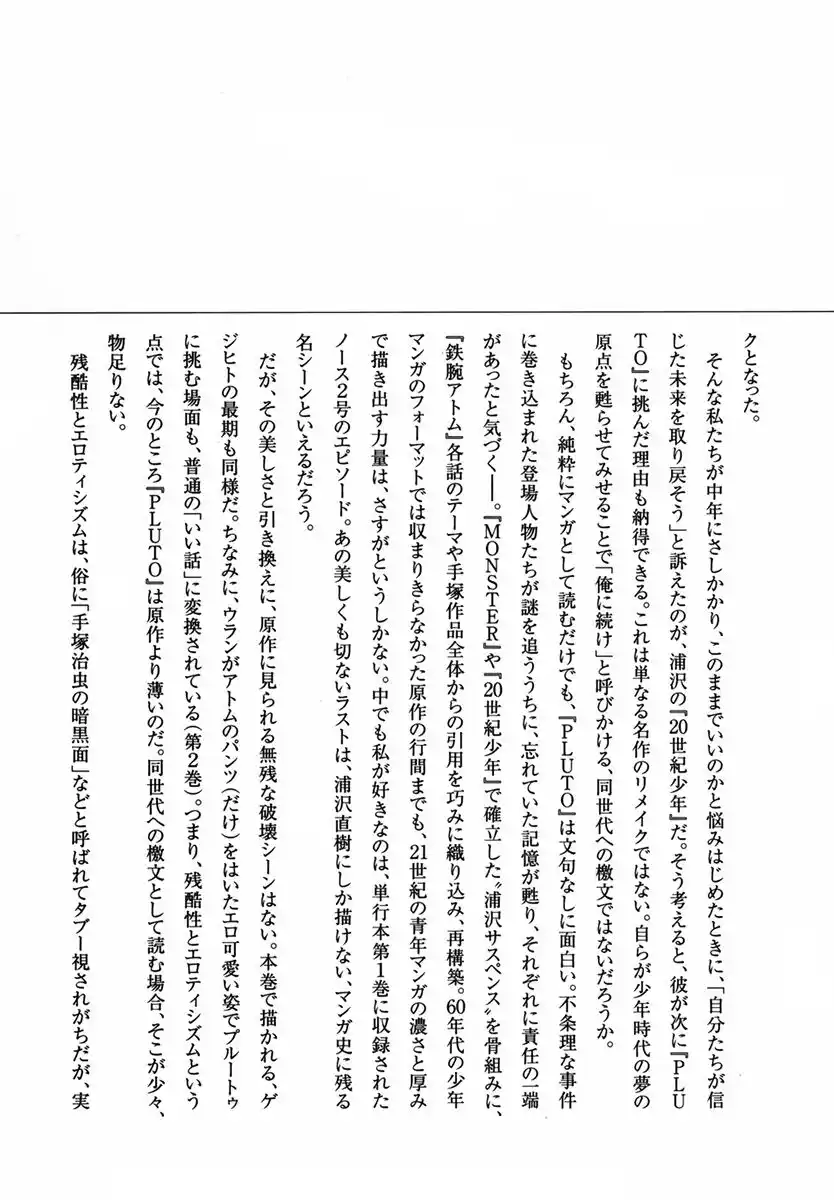 クとなった。
そんな私たちが中年にさしかかり、このままでいいのかと悩みはじめたときに、「自分たちが信
じた未来を取り戻そう」と訴えたのが、浦沢の『20世紀少年』だ。そう考えると、彼が次に『PLU
TO』に挑んだ理由も納得できる。これは単なる名作のリメイクではない。自らが少年時代の夢の
原点を甦らせてみせることで「俺に続け」と呼びかける、同世代への檄文ではないだろうか。
もちろん、純粋にマンガとして読むだけでも、『PLUTO』は文句なしに面白い。不条理な事件
に巻き込まれた登場人物たちが謎を追ううちに、忘れていた記憶が甦り、それぞれに責任の一端
があったと気づく――。『MONSTER』や『20世紀少年』で確立した〝浦沢サスペンス〟を骨組みに、
『鉄腕アトム』各話のテーマや手塚作品全体からの引用を巧みに織り込み、再構築。60年代の少年
マンガのフォーマットでは収まりきらなかった原作の行間までも、21世紀の青年マンガの濃さと厚み
で描き出す力量は、さすがというしかない。中でも私が好きなのは、単行本第1巻に収録された
ノース2号のエピソード。あの美しくも切ないラストは、浦沢直樹にしか描けない、マンガ史に残る
名シーンといえるだろう。
だが、その美しさと引き換えに、原作に見られる無残な破壊シーンはない。本巻で描かれる、ゲ
ジヒトの最期も同様だ。ちなみに、ウランがアトムのパンツ（だけ）をはいたエロ可愛い姿でプルートゥ
に挑む場面も、普通の「いい話」に変換されている（第2巻）。つまり、残酷性とエロティシズムという
点では、今のところ『PLUTO』は原作より薄いのだ。同世代への檄文として読む場合、そこが少々、
物足りない。
残酷性とエロティシズムは、俗に「手塚治虫の暗黒面」などと呼ばれてタブー視されがちだが、実